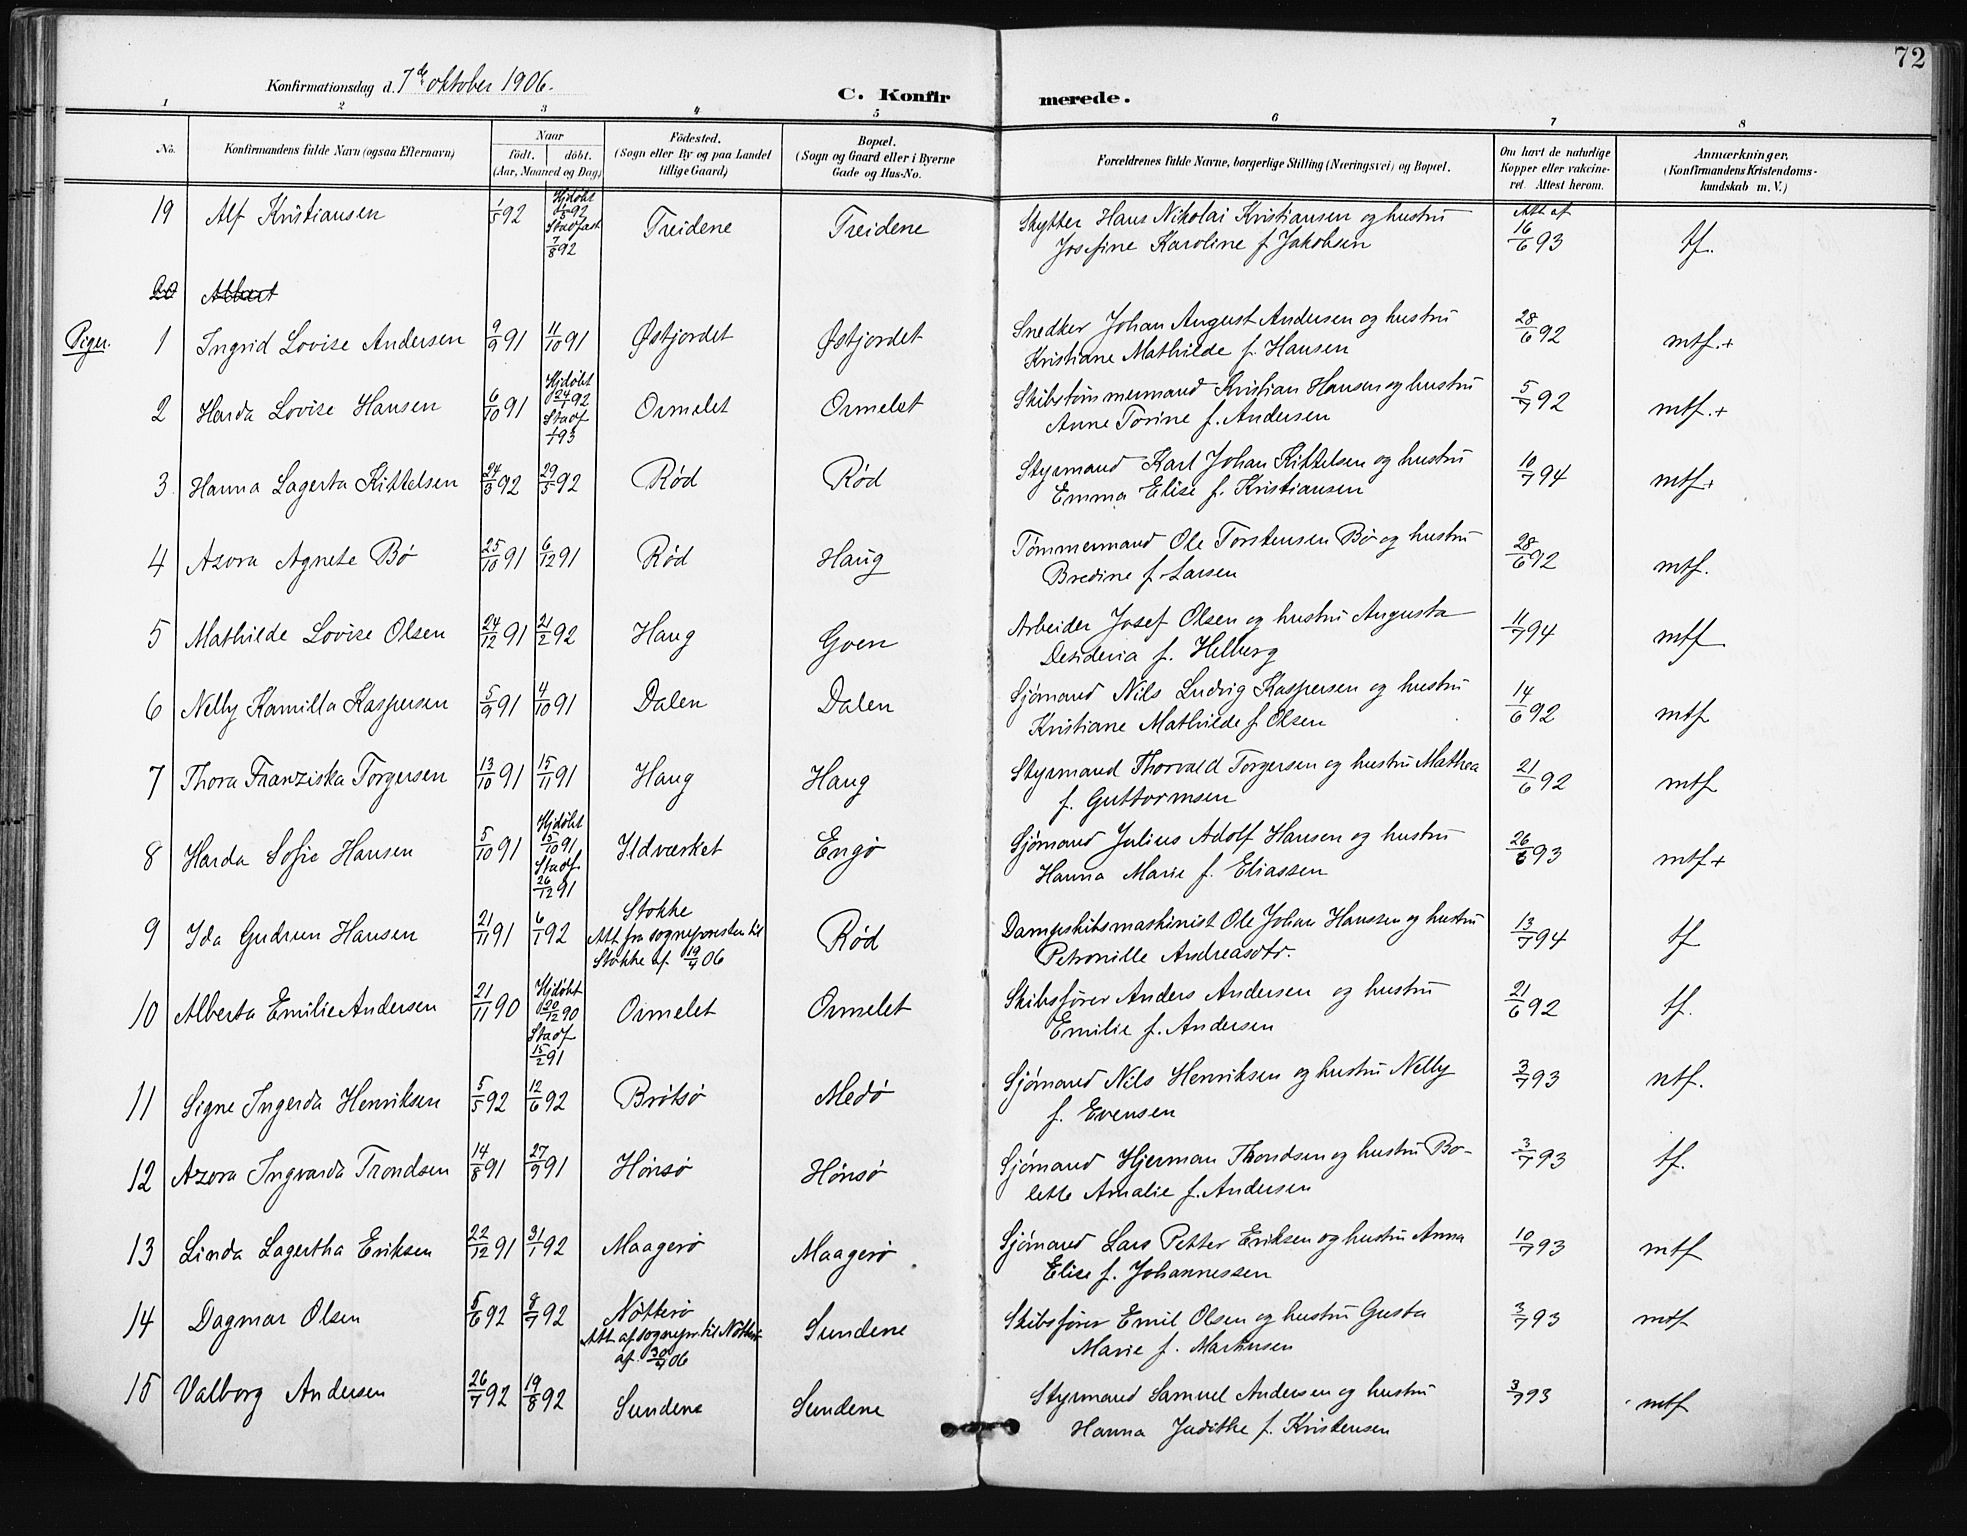 72
Konfirmationsdag d. 7de oktober 1906.
C. Konfirmerede.
1 2 3 4 5 6 7 8
No. Konfirmandens fulde Navn (ogsaa Efternavn) Naar født. døbt. (Aar, Maaned og Dag) Födested. (Sogn eller By og paa Landet tillige Gaard) Bopæl. (Sogn og Gaard eller i Byerne Gade og Hus-No. Forældrenes fulde Navne, borgerlige Stilling (Næringsvei) og Bopæl. Om havt de naturlige Kopper eller vakcineret. Attest herom. Anmærkninger. (Konfirmandens Kristendomskundskab m. V.)
19 Alf Kristiansen 1/5 92 Hjdøbt 1/5 92 Stadfæst 7/8 92 Treidene Treidene Skytter Hans Nikolai Kristiansen og hustru Josefine Karoline f. Jakobsen Att. af 16/6 93 tf.
20 Albert
Piger.
1 Ingrid Lovise Andersen 9/9 91 11/10 91 Østjordet Østjordet Snedker Johan August Andersen og hustru Kristiane Mathilde f. Hansen 28/6 92 mtf.+
2 Harda Lovise Hansen 6/10 91 Hjdøbt Stadf Ormelet Ormelet Skibstømmermand Kristian Hansen og hustru Anne Torine f. Andersen 5/7 92 mtf.+
3 Hanna Lagerta Kittelsen 24/3 92 29/5 92 Rød Rød Styrmand Karl Johan Kittelsen og hustru Emma Elise f. Kristiansen 10/7 94 mtf+
4 Azora Agnete Bø 25/10 91 6/12 91 Rød Haug Tømmermand Ole Torstensen Bø og hustru Bredine f. Larsen 28/6 92 mtf.
5 Mathilde Lovise Olsen 24/12 91 21/2 92 Haug Goen Arbeider Josef Olsen og hustru Augusta Desideria f. Helberg 11/7 94 mtf
6 Nelly Kamilla Kaspersen 5/9 91 4/10 91 Dalen Dalen Sjømand Nils Ludvig Kaspersen og hustru Kristiane Mathilde f. Olsen 14/6 92 mtf
7 Thora Franziska Torgersen 13/10 91 15/11 91 Haug Haug Styrmand Thorvald Torgersen og hustru Mathea f. Guttormsen 21/6 92 mtf
8 Harda Sofie Hansen 5/10 91 Hjdøbt 5/10 91 Stadf 26/12 91 Ildværket Engø Sjømand Julius Adolf Hansen og hustru Hanna Marie f. Eliassen 26/6 93 mtf+
9 Ida Gudrun Hansen 21/11 91 6/1 92 Stokke Att fra sognepresten til Stokke af 19/4 06 Rød Dampskibsmaskinist Ole Johan Hanssen og hustru Petronille Andreasdtr. 13/7 94 tf
10 Alberta Emilie Andersen 21/11 90 Hjdøbt 20/12 90 Stadf 15/2 91 Ormelet Ormelet Skibsfører Anders Andersen og hustru Emilie f. Andersen 21/6 92 tf.
11 Signe Ingerda Henriksen 5/5 92 12/6 92 Brøtsø Medø Sjømand Nils Henriksen og hustru Nelly f. Evensen 3/7 93 ntf.
12 Azora Ingvarda Trondsen 14/8 91 27/9 91 Hønsø Hønsø Sjømand Hjerman Thondsen og hustru Bolette Amalie f. Andersen 3/7 93 tf.
13 Linda Lagertha Eriksen 22/12 91 31/1 92 Maagerø Maagerø Sjømand Lars Petter Eriksen og hustru Anna Elise f. Johannessen 10/7 93 mtf
14 Dagmar Olsen 5/6 92 8/7 92 Nøtterø Att af sognepr. til Nøtterø af 30/4 06 Sundene Skibsfører Emil Olsen og hustru Gusta Marie f. Markusen 3/7 93 mtf
15 Valborg Andersen 26/7 92 19/8 92 Sundene Sundene Styrmand Samuel Andersen og hustru Hanna Judithe f. Kristensen 3/7 93 mtf